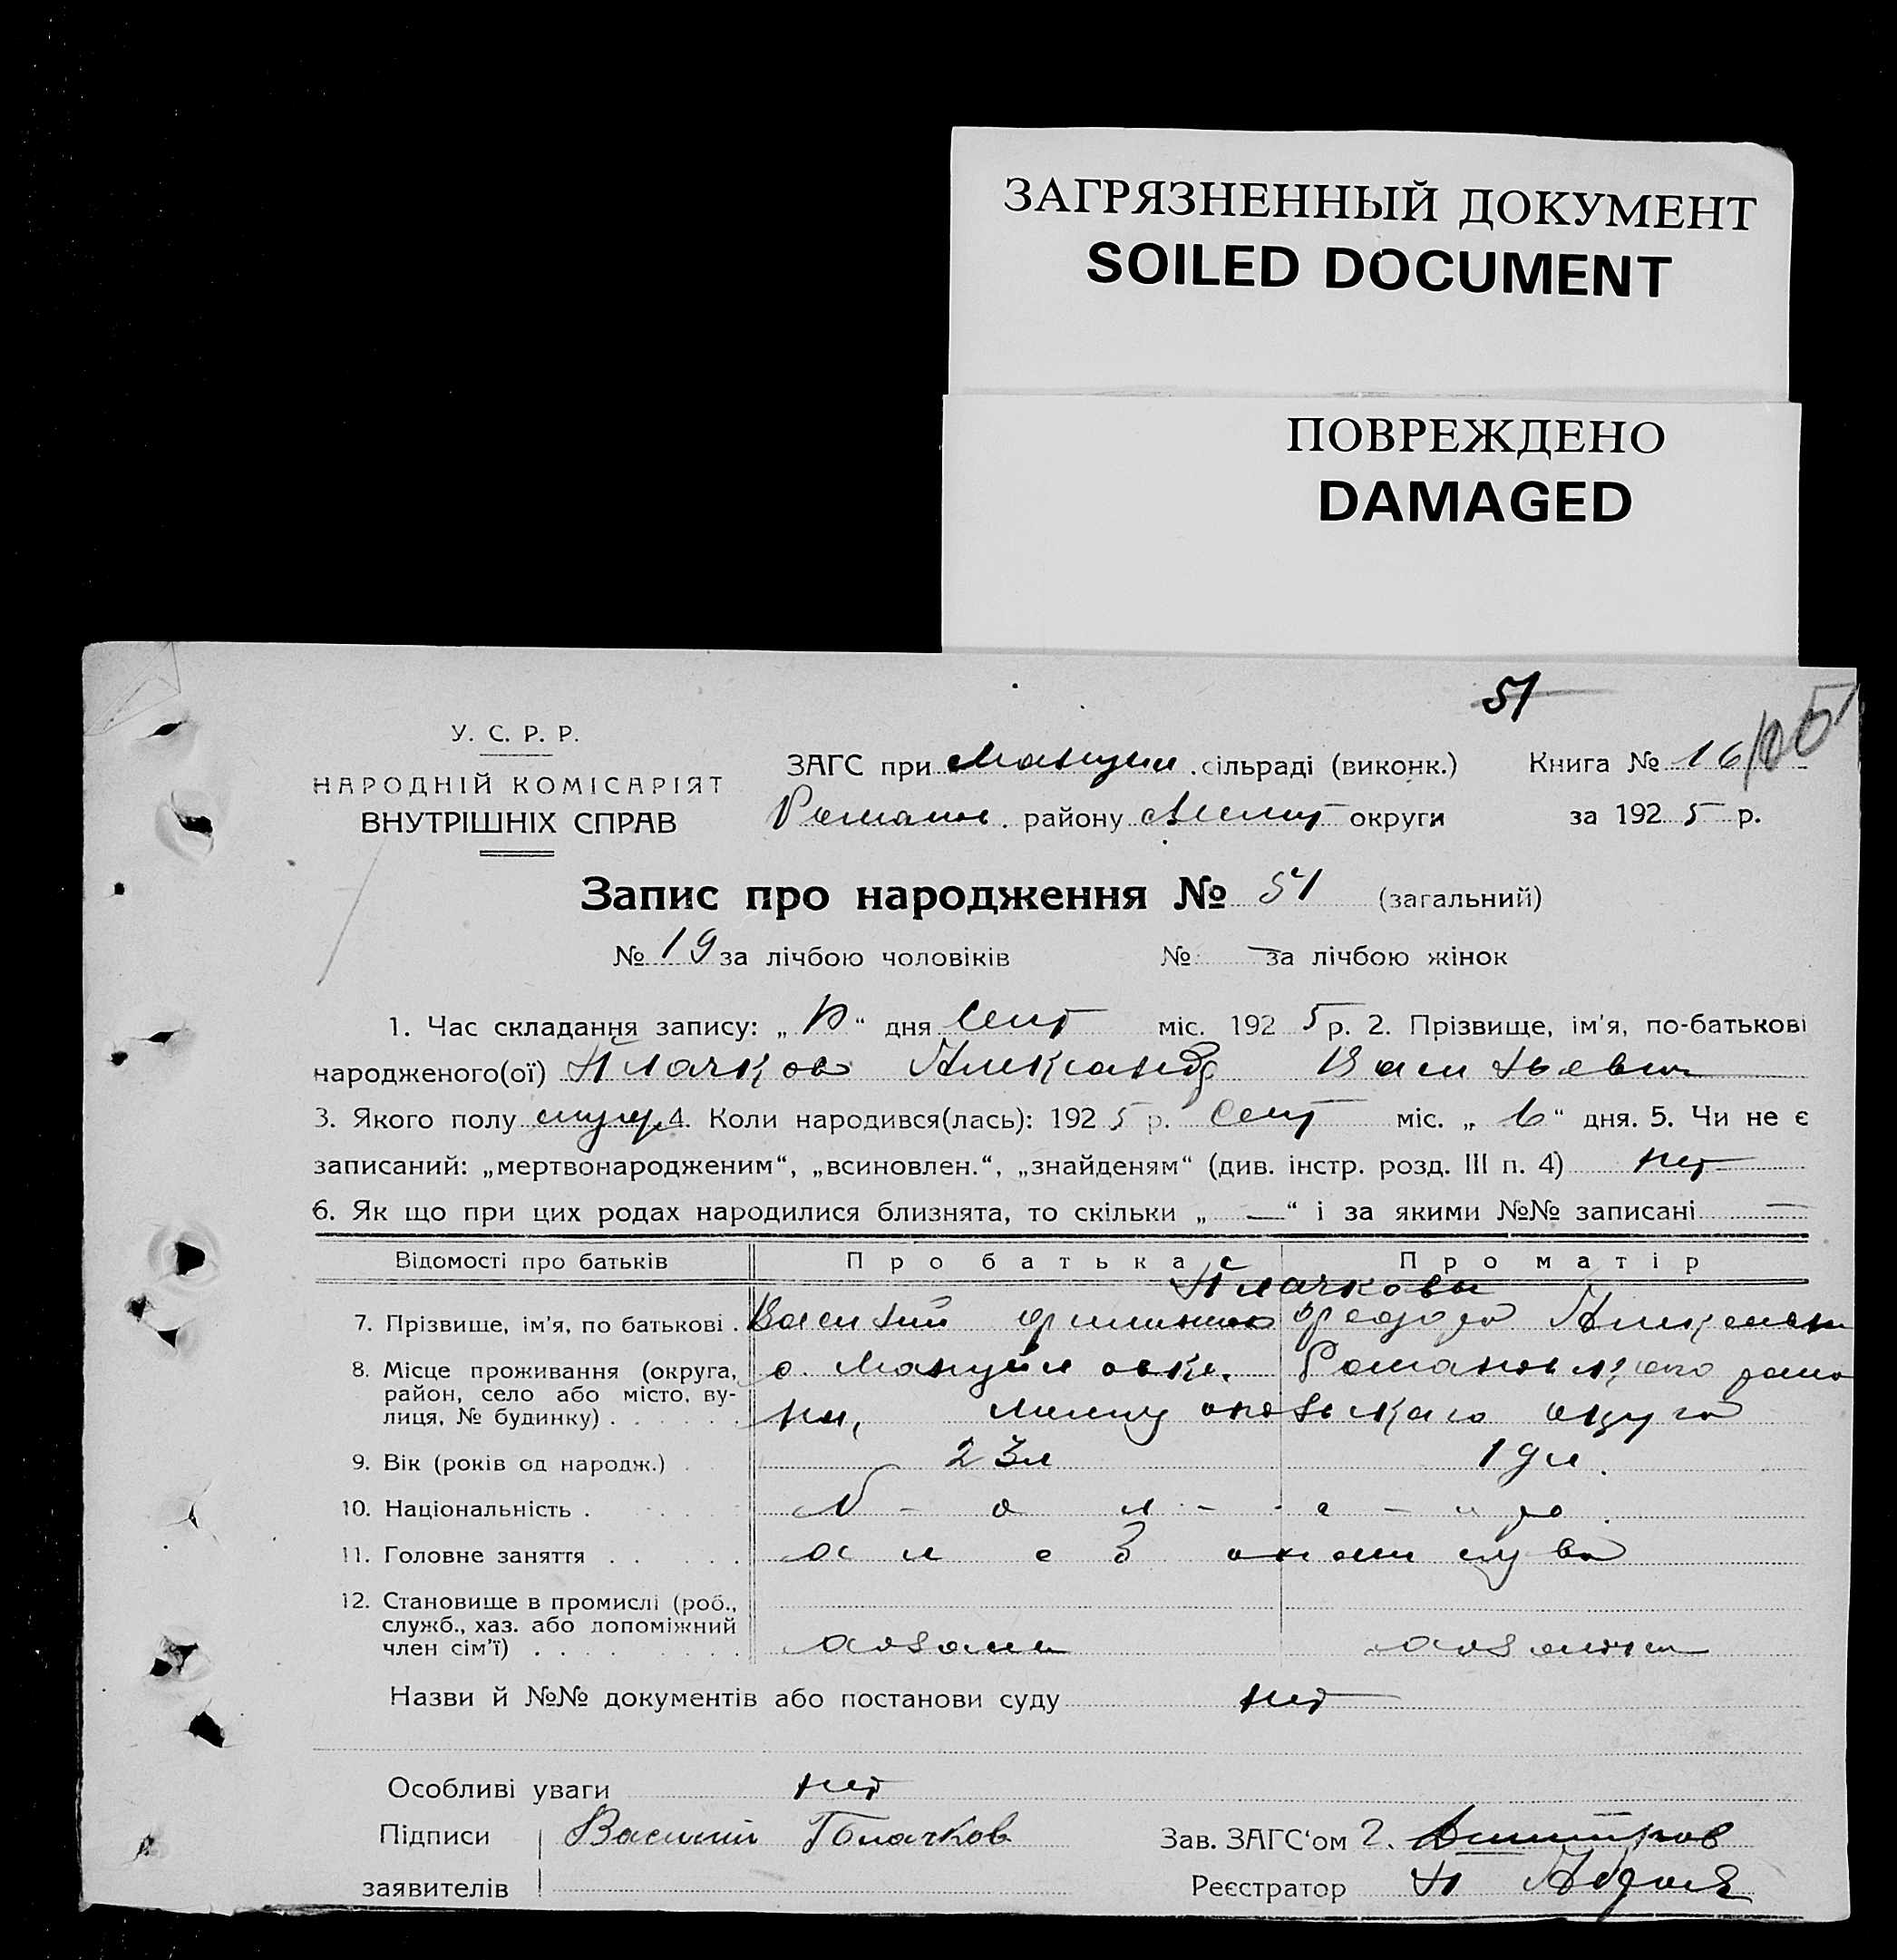 ЗАГРЯЗНЕННЫЙ ДОКУМЕНТ
SOILED DOCUMENT
ПОВРЕЖДЕНО
DAMAGED
51
У. С. Р. Р.
НАРОДНІЙ КОМІСАРІЯТ
ВНУТРІШНІХ СПРАВ
ЗАГС при Мануил. сільраді (виконк.) Книга № 16
Романов. району Мелит округи за 1925 р.
Запис про народження № 51 (загальний)
№ 19 за лічбою чоловіків № — за лічбою жінок
1. Час складання запису: „ “ дня Сент міс. 1925 р. 2. Прізвище, ім'я, по-батькові
народженого(ої) Плачков Александр Васильевич
3. Якого полу муж 4. Коли народився(лась): 1925 р. Сент міс. „ 6 “ дня. 5. Чи не є
записаний: „мертвонародженим“, „всиновлен.“, „знайденям“ (див. інстр. розд. III п. 4) нет
6. Як що при цих родах народилися близнята, то скільки „ — “ і за якими №№ записані —
Відомості про батьків Про батька Про матір
Плачковы
7. Прізвище, ім'я, по батькові . Василий Филиппов Федора Алексеев
8. Місце проживання (округа, с. Мануйловки. Романовского райо
район, село або місто, ву-
лиця, № будинку) . . . . . . на, Мелитопольского округа
9. Вік (років од народж.) . 23 л 19 л.
10. Національність . болгаре
11. Головне заняття . . . . . хлебопашество
12. Становище в промислі (роб.,
служб., хаз. або допоміжний
член сім'ї) . . . . . . . . . хозяин хозяйка
Назви й №№ документів або постанови суду нет
Особливі уваги нет
Підписи Василий Плачков Зав. ЗАГС'ом Г. Димитров
заявителів Реєстратор